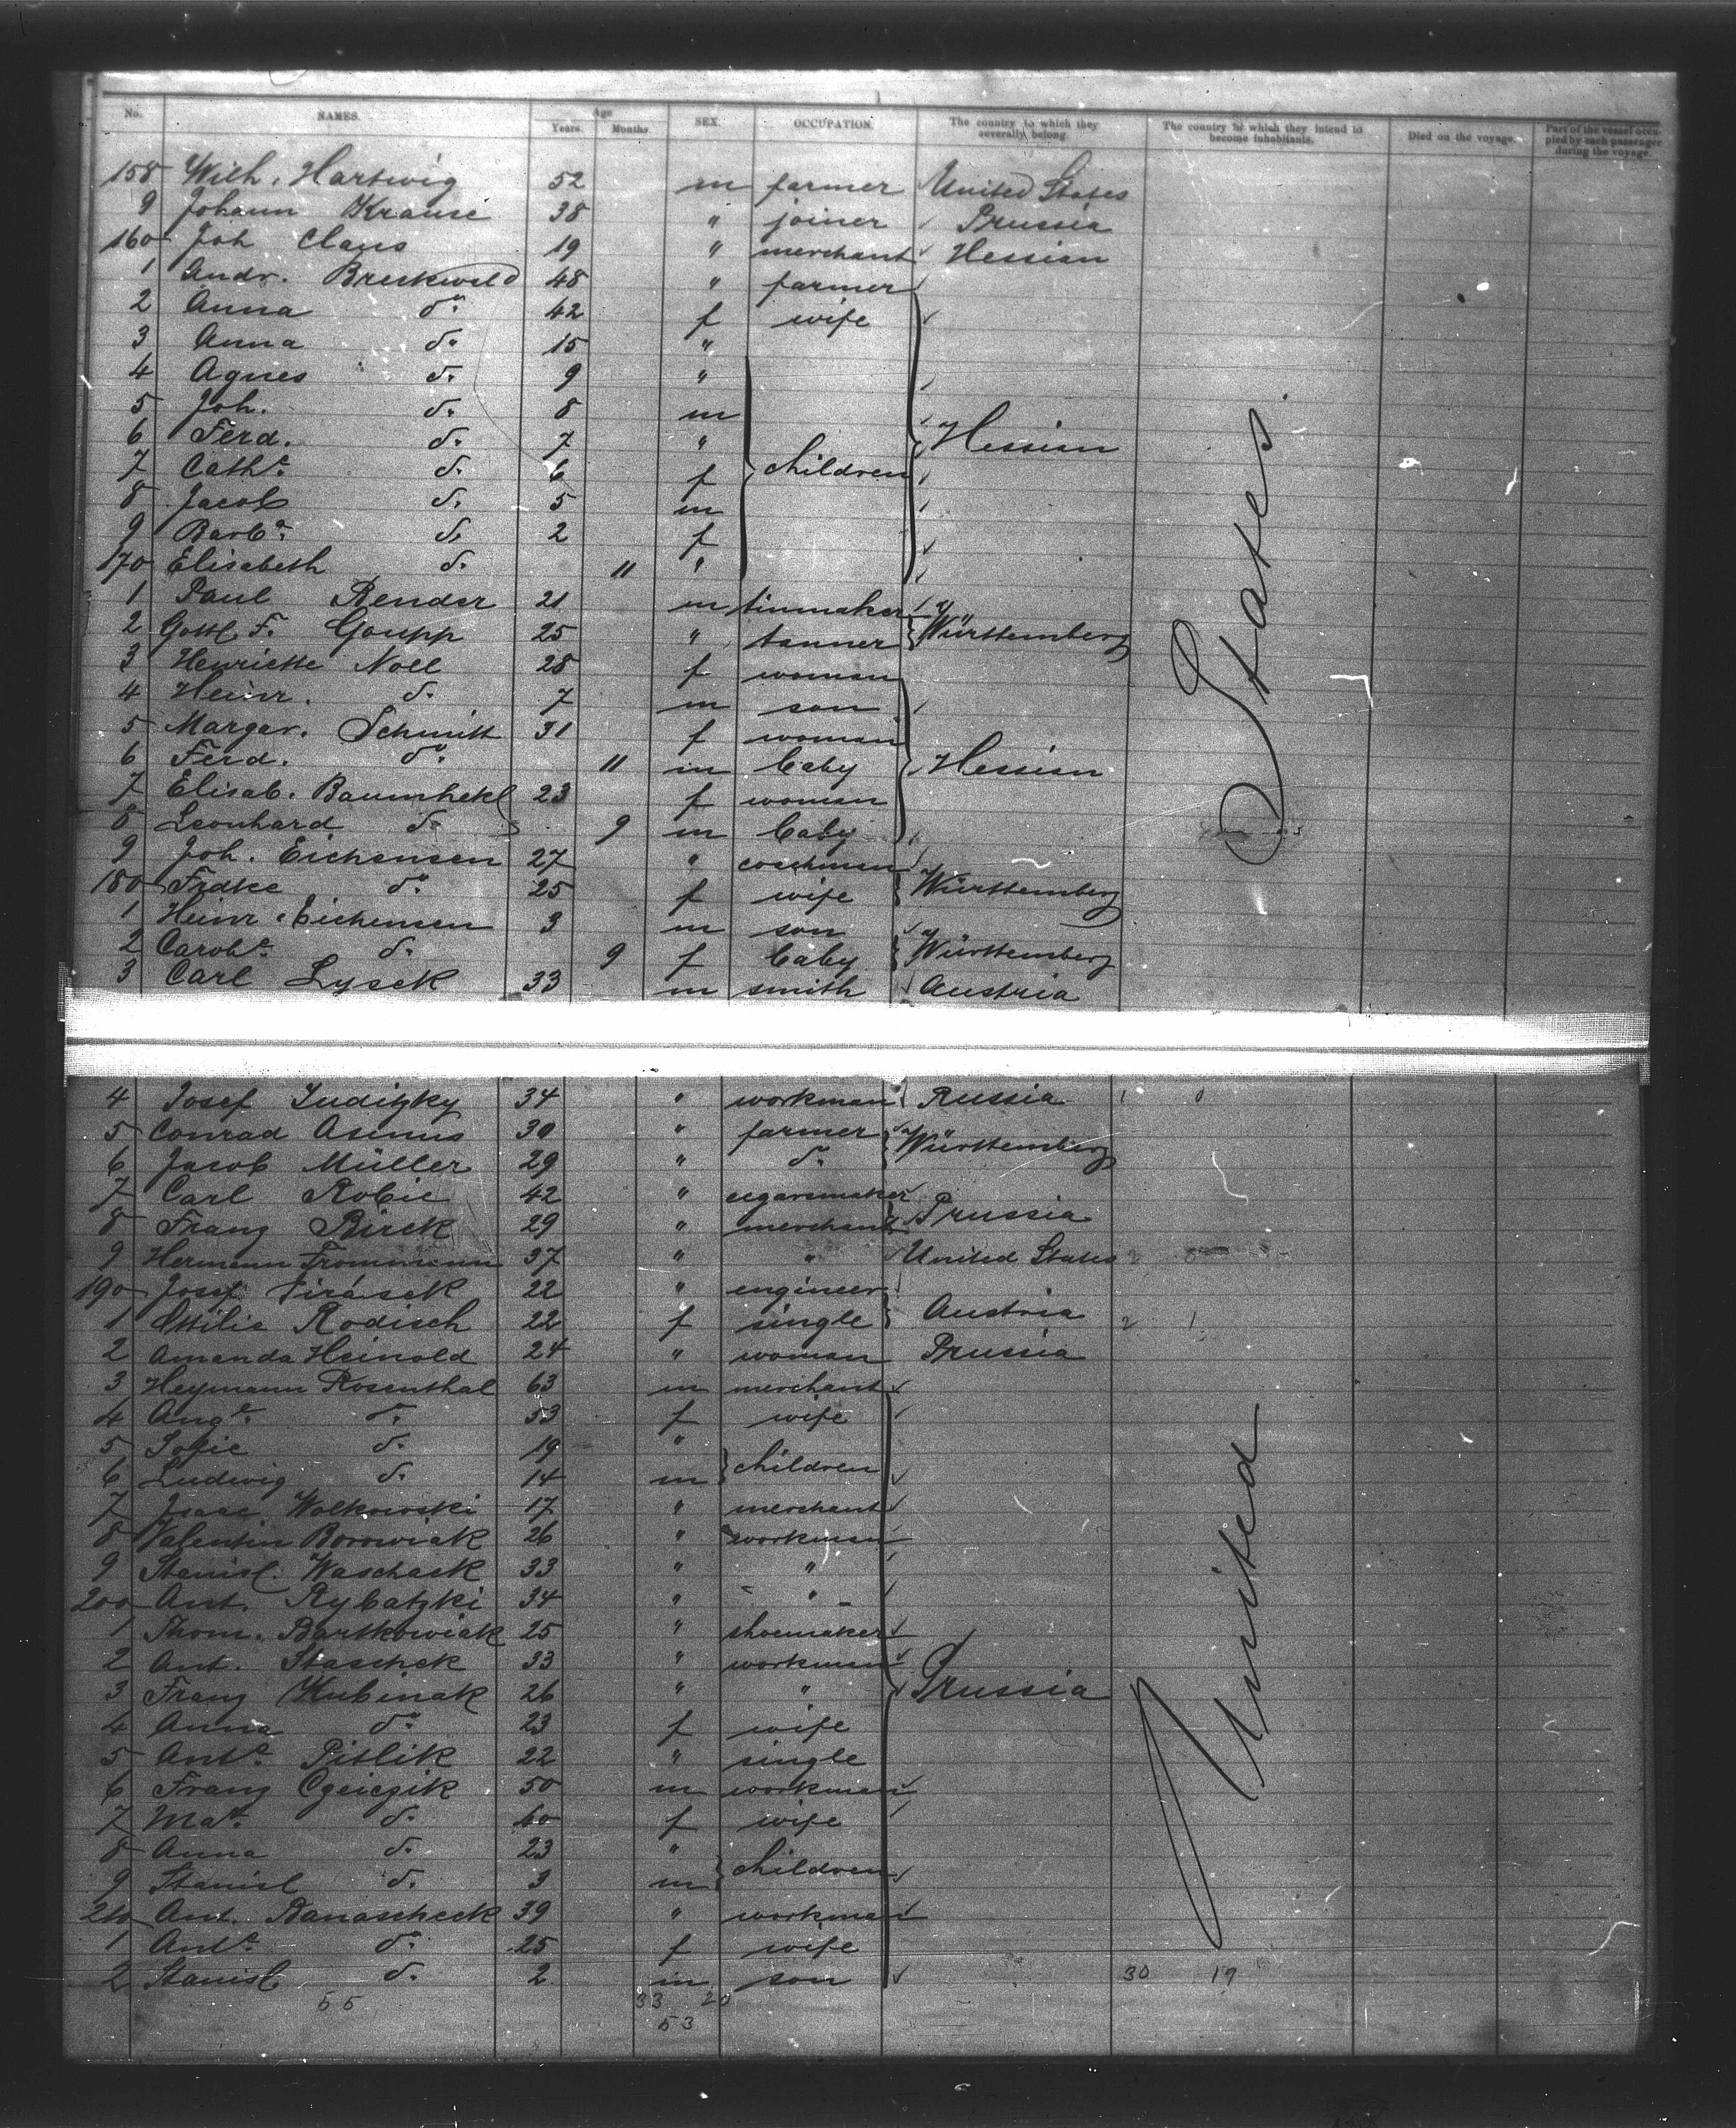 No. NAMES. Age Years. Months. SEX. OCCUPATION. The country to which they severally belong. The country in which they intend to become inhabitants. Died on the voyage. Part of the vessel occupied by each passenger during the voyage.
158 Wilh. Hartwig 52 m farmer United States
9 Johann Krause 38 " joiner Prussia
160 Joh Claus 19 " merchant Hessian
1 Andr. Breskwold 48 " farmer
2 Anna do. 42 f wife
3 Anna do. 15 "
4 Agnes do. 9 "
5 Joh. do. 8 m
6 Ferd. do. 7 " Hessian
7 Cathe. do. 6 f children
8 Jacob do. 5 m
9 Barba. do. 2 f
170 Elisabeth do. 11 "
1 Paul Render 21 m tinmaker
2 Gottl. F. Goupp 25 " tanner Württemberg
3 Henriette Noll 28 f woman
4 Heinr. do. 7 m son
5 Margar. Schmitt 31 f woman
6 Ferd. do. 11 m baby Hessian
7 Elisab. Baumhekl 23 f woman
8 Leonhard do. 9 m baby
9 Joh. Eichensen 27 " coachman
180 Frdke do. 25 f wife Württemberg
1 Heinr. Eichensen 3 m son
2 Carole. do. 9 f baby Württemberg
3 Carl Lysek 33 m smith Austria
States.
4 Josef Juditzky 34 " workman Russia 1 0
5 Conrad Asimus 30 " farmer Württemberg
6 Jacob Müller 29 " do.
7 Carl Robie 42 " cigarsmaker Prussia
8 Franz Birck 29 " merchant
9 Hermann Frommann 37 " " United States
190 Josef Jirásek 22 " engineer
1 Ottilie Rodisch 22 f single Austria 2 1
2 Amanda Heinold 24 " woman Prussia
3 Heymann Rosenthal 63 m merchant
4 Auge. do. 53 f wife
5 Sofie do. 19 "
6 Ludwig do. 14 m children
7 Isaac Wolkowski 17 " merchant
8 Valentin Borowiak 26 " workman
9 Stanisl. Waschack 33 " "
200 Ant. Rybatzki 34 " "
1 Thom. Bartkowiak 25 " shoemaker
2 Ant. Staschek 33 " workman
3 Franz Kubinak 26 " " Prussia
4 Anna do. 23 f wife
5 Ante. Pitlik 22 " single
6 Franz Czeiczik 50 m workman
7 Mar. do. 60 f wife
8 Anna do. 23 "
9 Stanisl do. 3 m children
210 Ant. Banascheck 39 " workman
1 Ante. do. 25 f wife
2 Stanisl. do. 2 m son 30 19
United
55 33 20
53